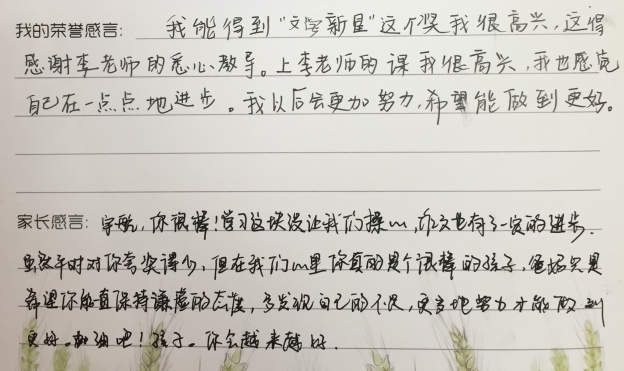 我的荣誉感言: 我能得到“文学新星”这个奖我很高兴,这得
感谢李老师的悉心教导。上李老师的课我很高兴,我也感觉
自己在一点点地进步。我以后会更加努力,希望能做到更好。
家长感言: 宇航,你很棒!学习这块没让我们操心,作文也有了一定的进步.
虽然平时对你夸奖得少,但在我们心里你真的是个很棒的孩子,爸妈只是
希望你能直保持谦虚的态度,多发现自己的不足,更多地努力才能做到
更好。加油吧!孩子。你会越来越好.